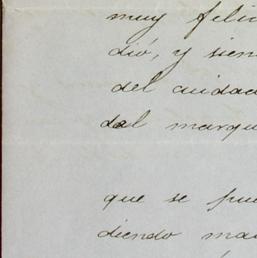 muy felic
dió, y sien
del cuidad
del marqu
que se pue
diendo ma